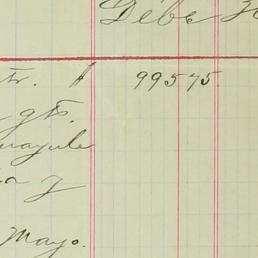 Debe
tr. $ 995 75.
gts.
Guayule
a y
Mayo.